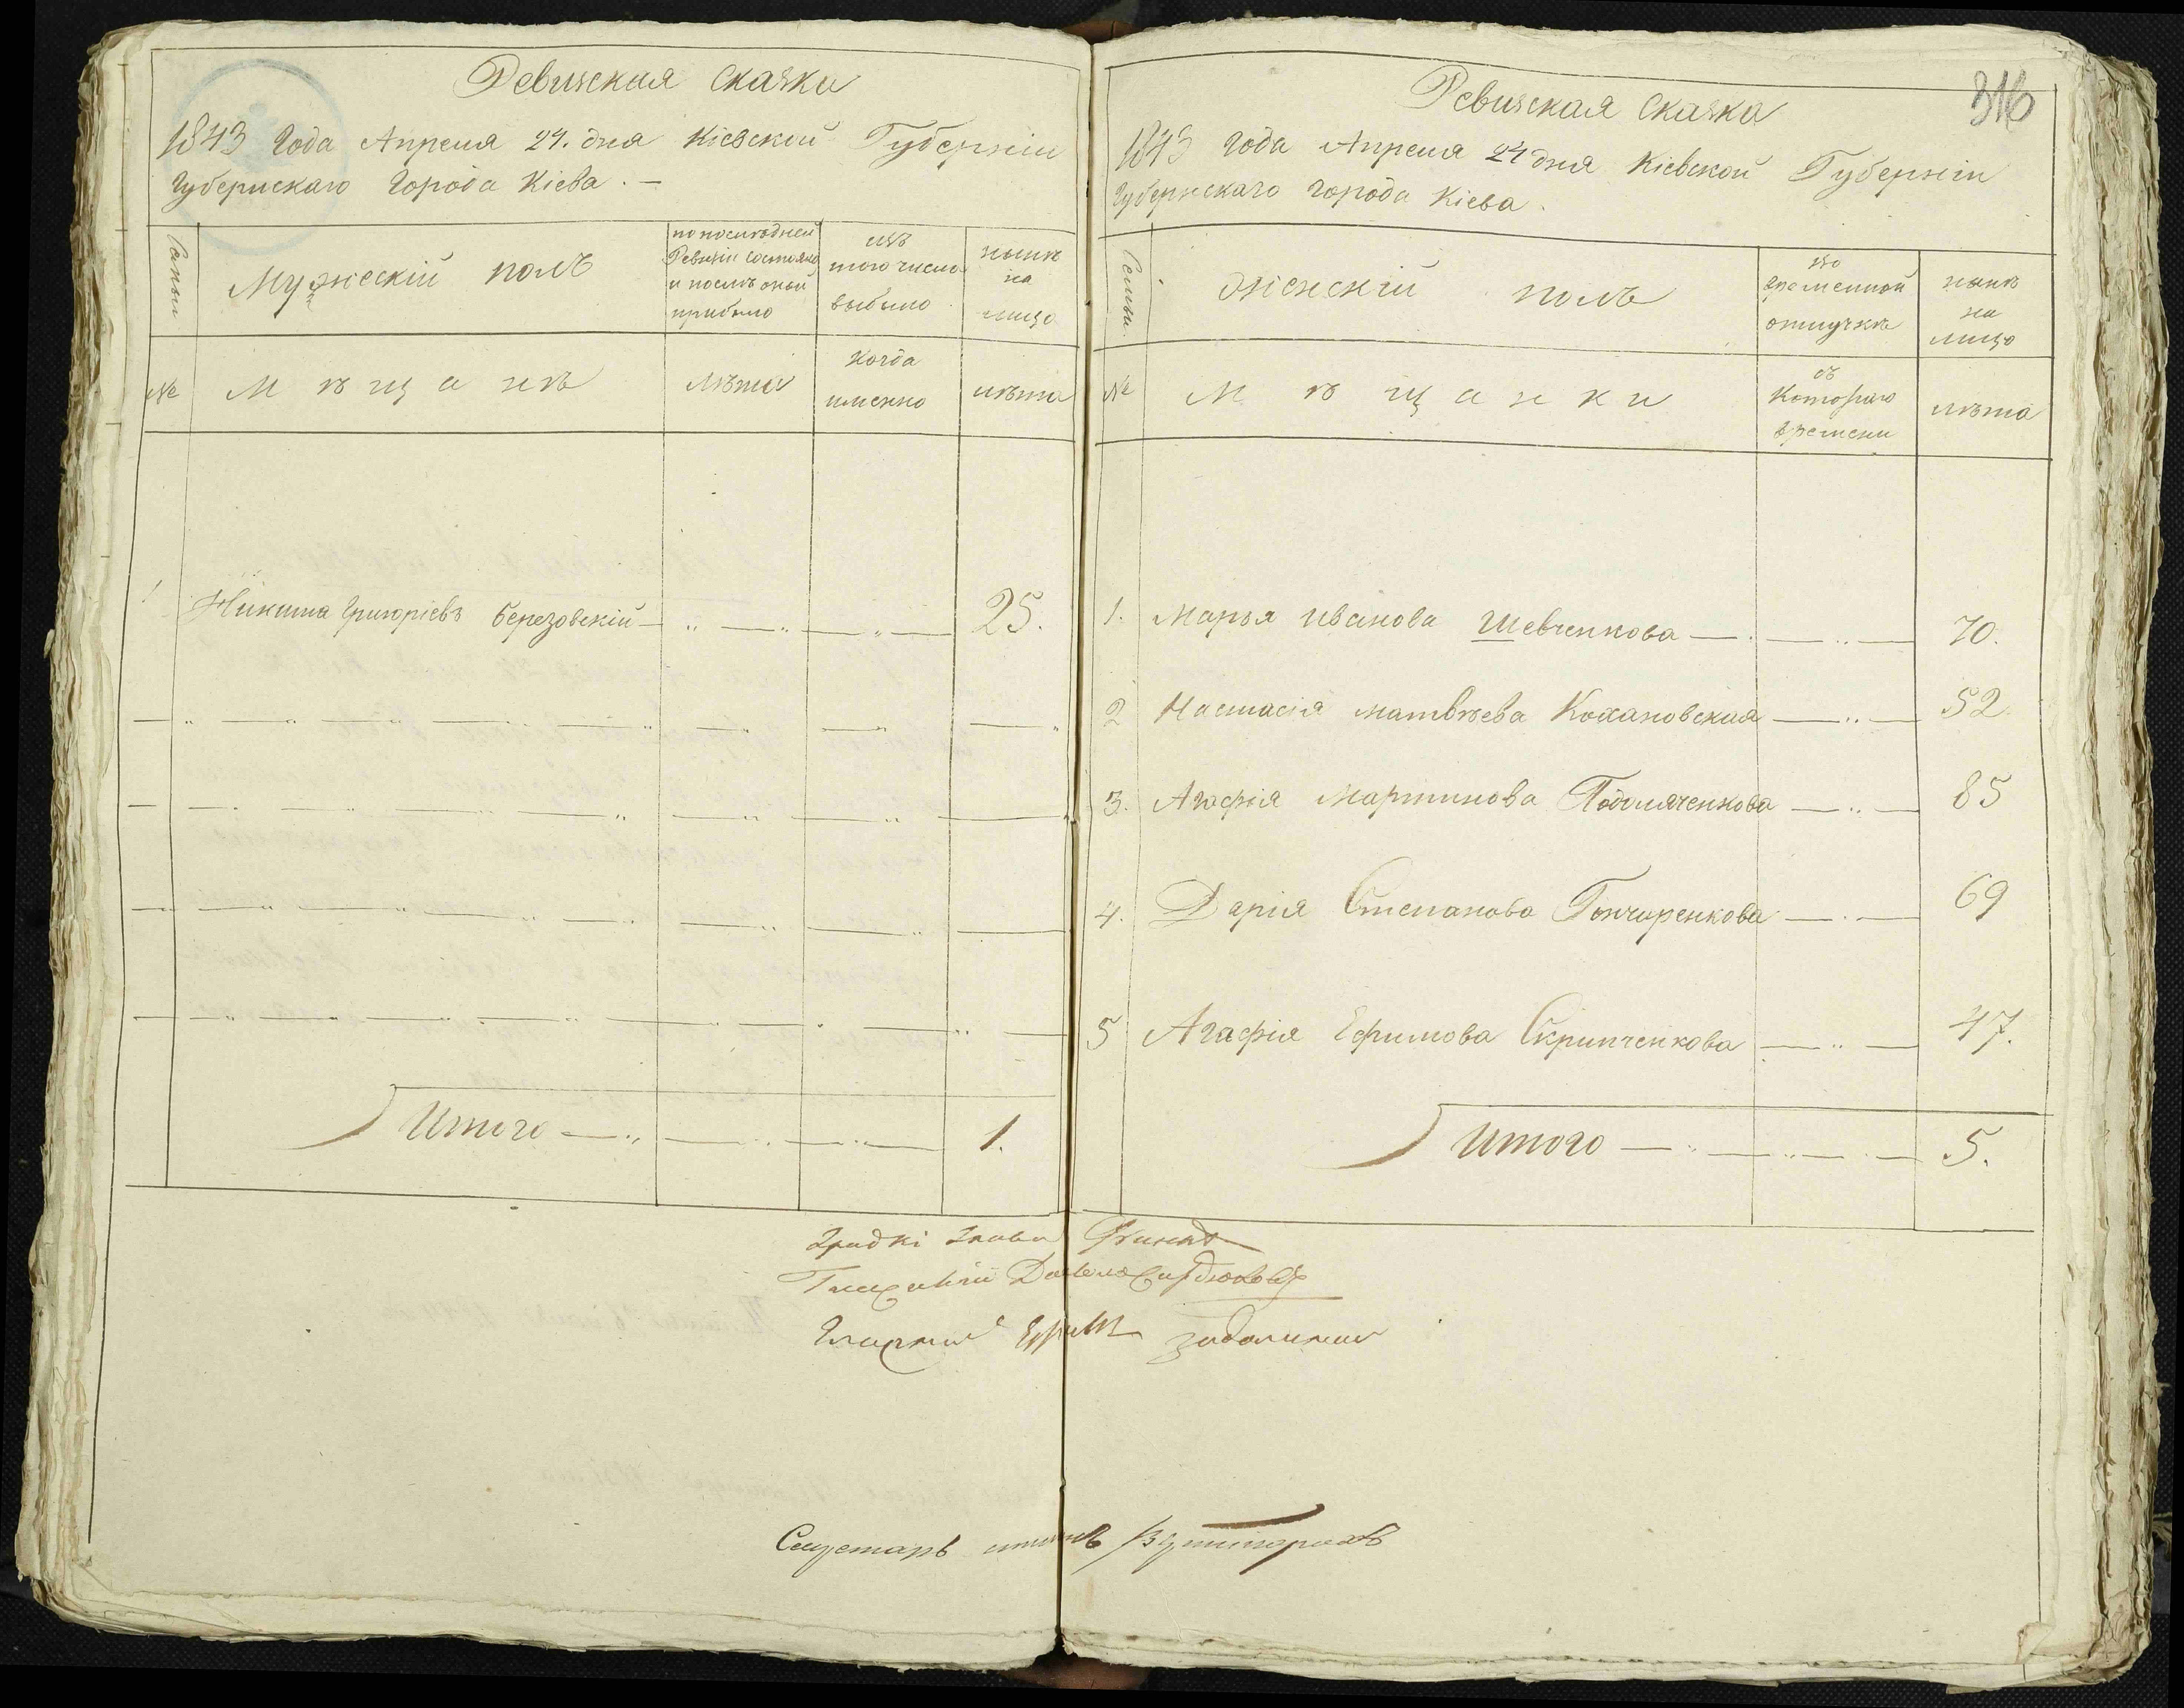 Ревизская сказка
1843 Года Апреля 24. дня Кіевской Губерніи
Губернскаго Города Кіева. —
Семьи
Мужескій полъ
по последней
Ревизіи состояло
и после оной
прибыло
изъ
того числа
выбыло
ныне
на
лицо
№
Мѣщанѣ
лѣта
когда
именно
лѣта
1 Никита Григоріевъ Березовскій — 25.
Итого — 1.
316
Ревизская сказка
1843 года Апреля 24 дня Кіевской Губерніи
Губернскаго города Кіева.
Семьи
женскій полъ
во
временной
отлучкѣ
нынѣ
на
лицо
№
Мѣщанки
съ
котораго
времени
лѣта
1. Марья Иванова Шевченкова — 70.
2 Настасія Матвѣева Кохановская — 52.
3. Агафія Мартинова Подоляченкова — 85
4. Дарія Степанова Гончаренкова — 69
5 Агафія Ефимова Скрипченкова — 47.
Итого — 5.